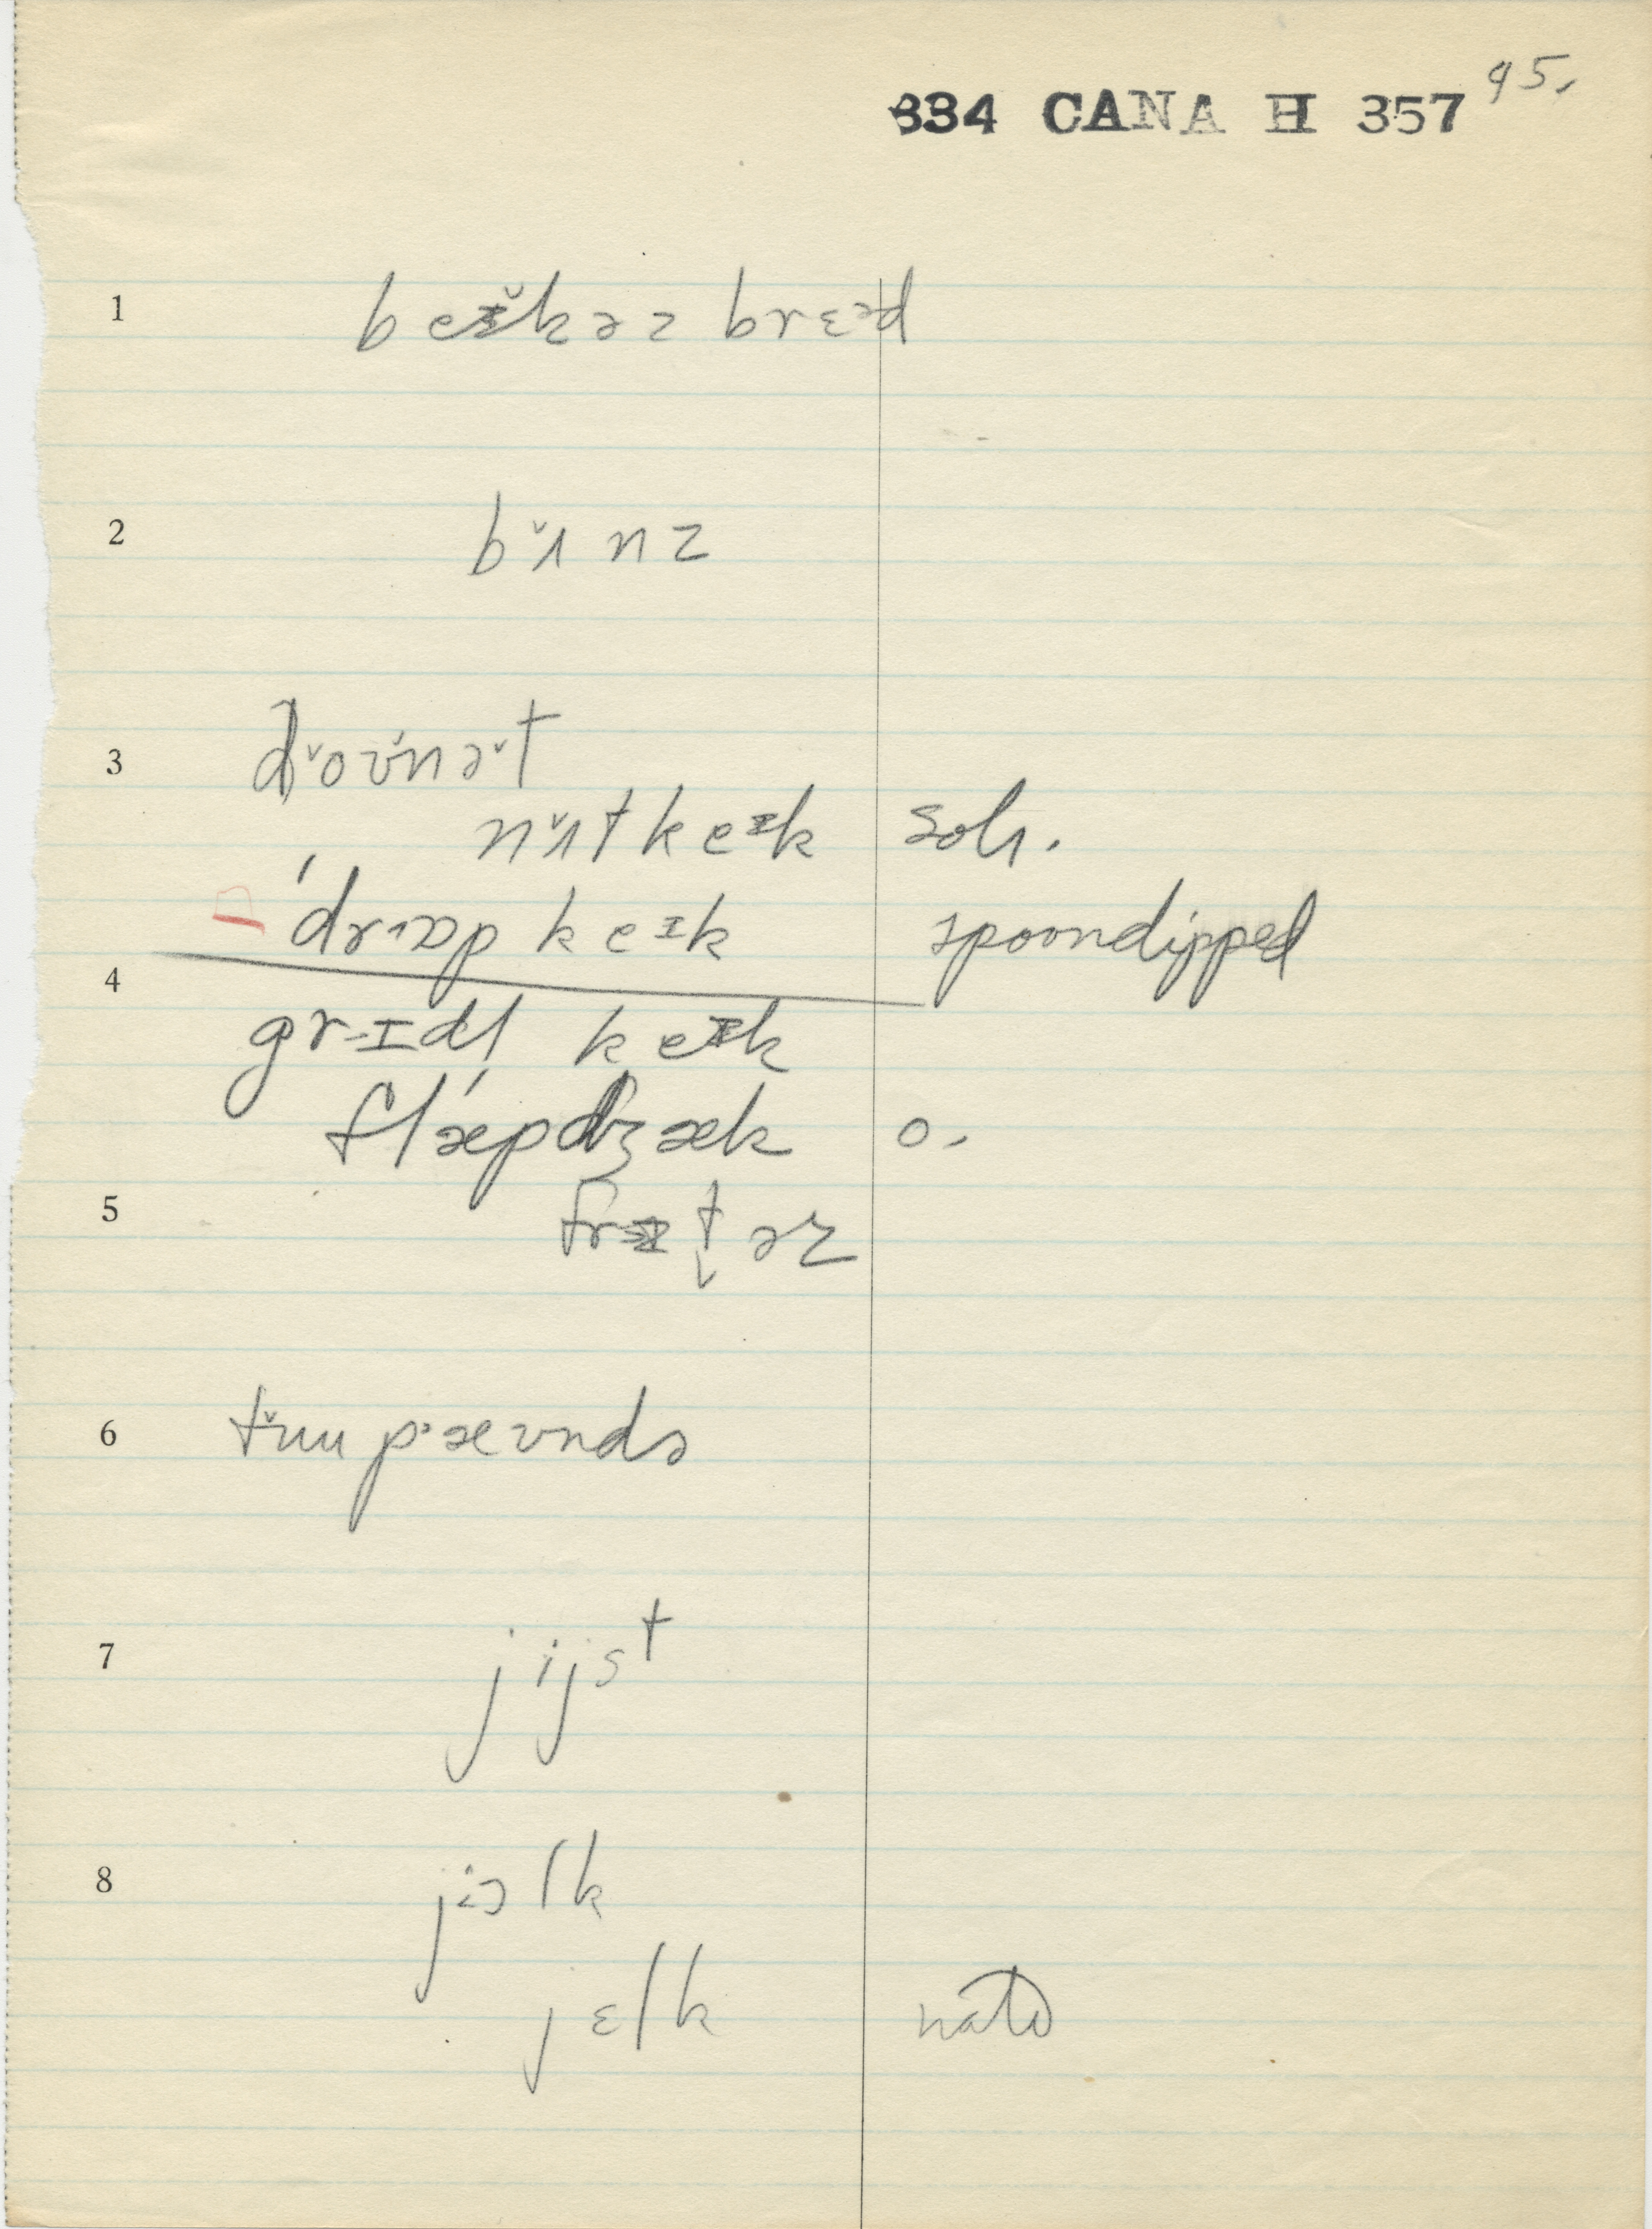 334 CANA H 357 45.
1 beɪ̌kəz brɛəd
2 bʌ̌nz
3 dǒʊ̌nə̌t
nʌ̌tkeɪk soh.
ˈdrɑp keɪk spoondipped
4 grɪdl keɪk
flǽpdʒæk o.
5 frɪt̬əz
6 tʉu pæʊndə
7 jijst
8 jiəlk
jɛlk